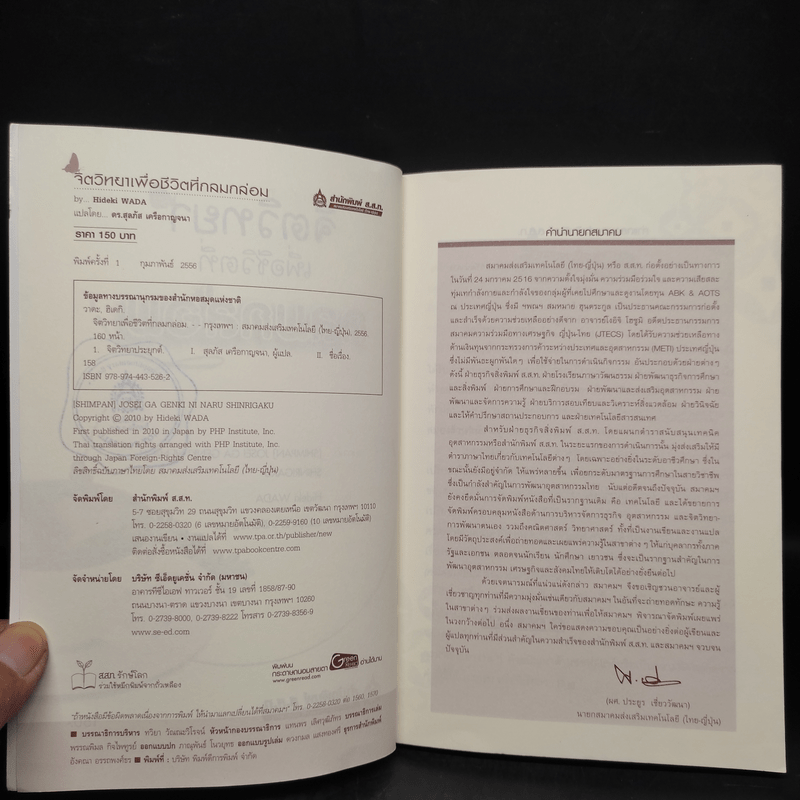 จิตวิทยาเพื่อชีวิตที่กลมกล่อม
by... Hideki WADA
แปลโดย... ดร.สุลภัส เครือกาญจนา
ราคา 150 บาท
สำนักพิมพ์ ส.ส.ท.
พิมพ์ครั้งที่ 1 กุมภาพันธ์ 2556
ข้อมูลทางบรรณานุกรมของสำนักหอสมุดแห่งชาติ
วาดะ, ฮิเดกิ.
จิตวิทยาเพื่อชีวิตที่กลมกล่อม. - - กรุงเทพฯ : สมาคมส่งเสริมเทคโนโลยี (ไทย-ญี่ปุ่น), 2556.
160 หน้า.
1. จิตวิทยาประยุกต์. I. สุลภัส เครือกาญจนา, ผู้แปล. II. ชื่อเรื่อง.
158
ISBN 978-974-443-526-2
[SHIMPAN] JOSEI GA GENKI NI NARU SHINRIGAKU
Copyright © 2010 by Hideki WADA
First published in 2010 in Japan by PHP Institute, Inc.
Thai translation rights arranged with PHP Institute, Inc.
through Japan Foreign-Rights Centre
ลิขสิทธิ์ฉบับภาษาไทยโดย สมาคมส่งเสริมเทคโนโลยี (ไทย-ญี่ปุ่น)
จัดพิมพ์โดย สำนักพิมพ์ ส.ส.ท.
5-7 ซอยสุขุมวิท 29 ถนนสุขุมวิท แขวงคลองเตยเหนือ เขตวัฒนา กรุงเทพฯ 10110
โทร. 0-2258-0320 (6 เลขหมายอัตโนมัติ), 0-2259-9160 (10 เลขหมายอัตโนมัติ)
เสนองานเขียน • งานแปลได้ที่ www.tpa.or.th/publisher/new
ติดต่อสั่งซื้อหนังสือได้ที่ www.tpabookcentre.com
จัดจำหน่ายโดย บริษัท ซีเอ็ดยูเคชั่น จำกัด (มหาชน)
อาคารทีซีไอเอฟ ทาวเวอร์ ชั้น 19 เลขที่ 1858/87-90
ถนนบางนา-ตราด แขวงบางนา เขตบางนา กรุงเทพฯ 10260
โทร. 0-2739-8000, 0-2739-8222 โทรสาร 0-2739-8356-9
www.se-ed.com
ส.ส.ท. รักษ์โลก
รวมใช้หมึกพิมพ์จากถั่วเหลือง
พิมพ์บน
กระดาษถนอมสายตา
www.greenread.com
Green Read
อ่านได้นาน
"ถ้าหนังสือมีข้อผิดพลาดเนื่องจากการพิมพ์ ให้นำมาแลกเปลี่ยนได้ที่สมาคมฯ" โทร. 0-2258-0320 ต่อ 1560, 1570
■ บรรณาธิการบริหาร ทวิยา วัณณะวิโรจน์ หัวหน้ากองบรรณาธิการ แทนพร เลิศวุฒิภัทร บรรณาธิการเล่ม
พรรณพิมล กิจไพฑูรย์ ออกแบบปก ภาณุพันธ์ โนวยุทธ ออกแบบรูปเล่ม ดวงกมล แสงทองศรี ธุรการสำนักพิมพ์
อังคณา อรรถพงศ์ธร ■ พิมพ์ที่ : บริษัท พิมพ์ดีการพิมพ์ จำกัด
คำนำนายกสมาคม
สมาคมส่งเสริมเทคโนโลยี (ไทย-ญี่ปุ่น) หรือ ส.ส.ท. ก่อตั้งอย่างเป็นทางการ
ในวันที่ 24 มกราคม 2516 จากความตั้งใจมุ่งมั่น ความร่วมมือร่วมใจ และความเสียสละ
ทุ่มเทกำลังกายและกำลังใจของกลุ่มผู้ที่เคยไปศึกษาและดูงานโดยทุน ABK & AOTS
ณ ประเทศญี่ปุ่น ซึ่งมี ฯพณฯ สมหมาย ฮุนตระกูล เป็นประธานคณะกรรมการก่อตั้ง
และสำเร็จด้วยความช่วยเหลืออย่างดีจาก อาจารย์โงอิจิ โฮซูมิ อดีตประธานกรรมการ
สมาคมความร่วมมือทางเศรษฐกิจ ญี่ปุ่น-ไทย (JTECS) โดยได้รับความช่วยเหลือทาง
ด้านเงินทุนจากกระทรวงการค้าระหว่างประเทศและอุตสาหกรรม (METI) ประเทศญี่ปุ่น
ซึ่งไม่มีพันธะผูกพันใดๆ เพื่อใช้จ่ายในการดำเนินกิจกรรม อันประกอบด้วยฝ่ายต่างๆ
ดังนี้ ฝ่ายธุรกิจสิ่งพิมพ์ ส.ส.ท. ฝ่ายโรงเรียนภาษาวัฒนธรรม ฝ่ายพัฒนาธุรกิจการศึกษา
และสิ่งพิมพ์ ฝ่ายการศึกษาและฝึกอบรม ฝ่ายพัฒนาและส่งเสริมอุตสาหกรรม ฝ่าย
พัฒนาและจัดการความรู้ ฝ่ายบริการสอบเทียบและวิเคราะห์สิ่งแวดล้อม ฝ่ายวินิจฉัย
และให้คำปรึกษาสถานประกอบการ และฝ่ายเทคโนโลยีสารสนเทศ
สำหรับฝ่ายธุรกิจสิ่งพิมพ์ ส.ส.ท. โดยแผนกตำราสนับสนุนเทคนิค
อุตสาหกรรมหรือสำนักพิมพ์ ส.ส.ท. ในระยะแรกของการดำเนินการนั้น มุ่งส่งเสริมให้มี
ตำราภาษาไทยเกี่ยวกับเทคโนโลยีต่างๆ โดยเฉพาะอย่างยิ่งในระดับอาชีวศึกษา ซึ่งใน
ขณะนั้นยังมีอยู่จำกัด ให้แพร่หลายขึ้น เพื่อยกระดับมาตรฐานการศึกษาในสายวิชาชีพ
ซึ่งเป็นกำลังสำคัญในการพัฒนาอุตสาหกรรมไทย นับแต่อดีตจนถึงปัจจุบัน สมาคมฯ
ยังคงยึดมั่นการจัดพิมพ์หนังสือที่เป็นรากฐานเดิม คือ เทคโนโลยี และได้ขยายการ
จัดพิมพ์ครอบคลุมหนังสือด้านการบริหารจัดการธุรกิจ อุตสาหกรรม และจิตวิทยา-
การพัฒนาตนเอง รวมถึงคณิตศาสตร์ วิทยาศาสตร์ ทั้งที่เป็นงานเขียนและงานแปล
โดยมีวัตถุประสงค์เพื่อถ่ายทอดและเผยแพร่ความรู้ในสาขาต่าง ๆ ให้แก่บุคลากรทั้งภาค
รัฐและเอกชน ตลอดจนนักเรียน นักศึกษา เยาวชน ซึ่งจะเป็นรากฐานสำคัญในการ
พัฒนาอุตสาหกรรม เศรษฐกิจและสังคมไทยให้เติบโตได้อย่างยั่งยืนต่อไป
ด้วยเจตนารมณ์ที่แน่วแน่ดังกล่าว สมาคมฯ จึงขอเชิญชวนอาจารย์และผู้
เชี่ยวชาญทุกท่านที่มีความมุ่งมั่นเช่นเดียวกับสมาคมฯ ในอันที่จะถ่ายทอดทักษะ ความรู้
ในสาขาต่าง ๆ ร่วมส่งผลงานเขียนของท่านเพื่อให้สมาคมฯ พิจารณาจัดพิมพ์เผยแพร่
ในวงกว้างต่อไป อนึ่ง สมาคมฯ ใคร่ขอแสดงความขอบคุณเป็นอย่างยิ่งต่อผู้เขียนและ
ผู้แปลทุกท่านที่มีส่วนสำคัญในความสำเร็จของสำนักพิมพ์ ส.ส.ท. และสมาคมฯ จวบจน
ปัจจุบัน
(ผศ. ประยูร เชี่ยววัฒนา)
นายกสมาคมส่งเสริมเทคโนโลยี (ไทย-ญี่ปุ่น)